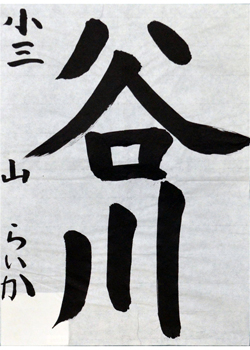 谷川
小三 山 らいか